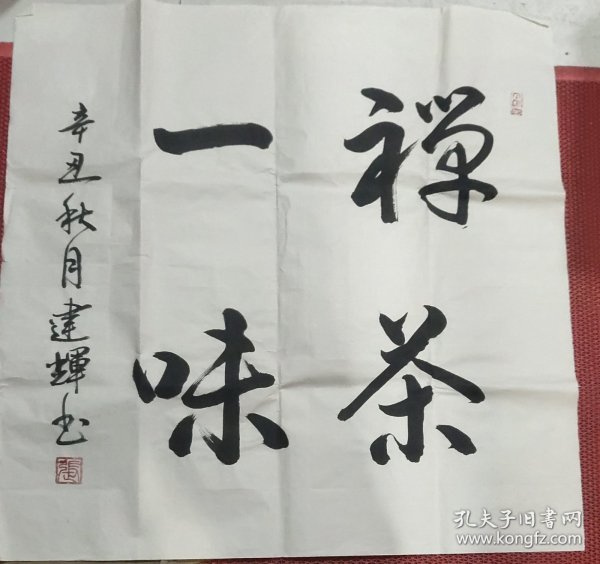 禅茶
一味
辛丑秋月建輝书
張
孔夫子旧書网
www.kongfz.com